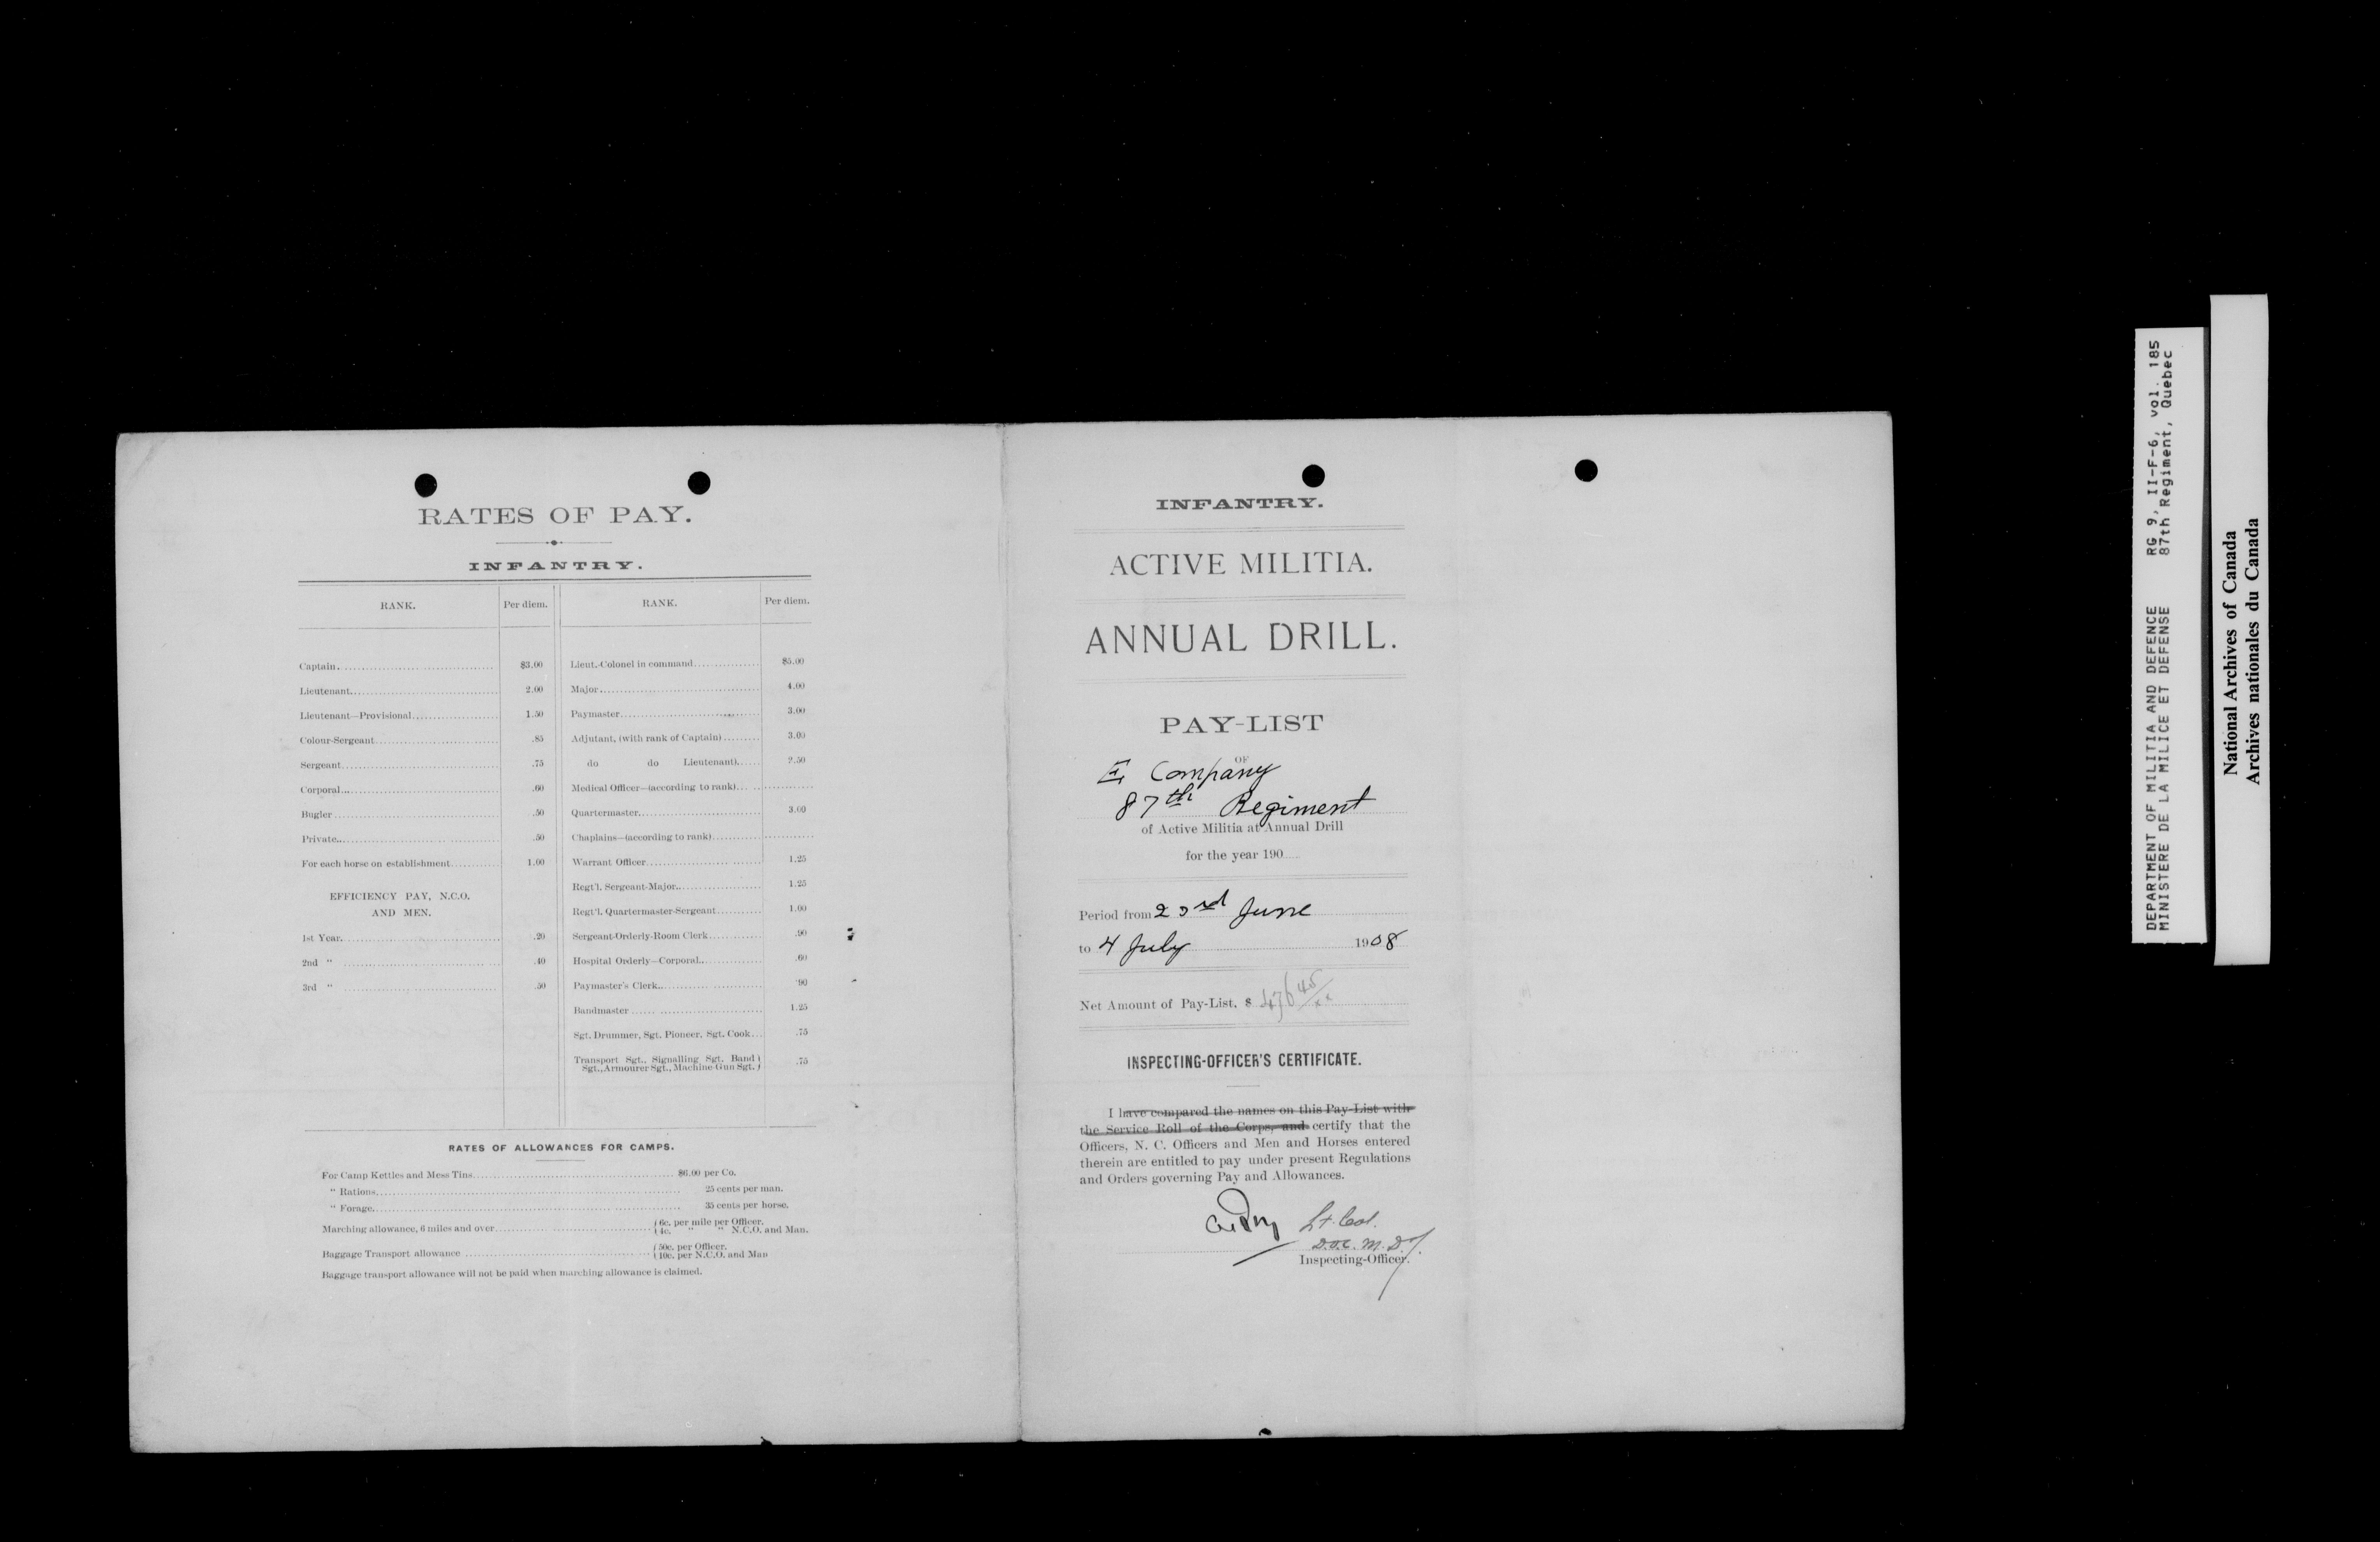 RATES OF PAY.
INFANTRY.
RANK. Per diem. RANK. Per diem.
Captain $3.00 Lieut.-Colonel in command $5.00
Lieutenant 2.00 Major 4.00
Lieutenant—Provisional 1.50 Paymaster 3.00
Colour-Sergeant .85 Adjutant, (with rank of Captain) 3.00
Sergeant .75 do do Lieutenant) 2.50
Corporal .60 Medical Officer—(according to rank)
Bugler .50 Quartermaster 3.00
Private .50 Chaplains—(according to rank)
For each horse on establishment 1.00 Warrant Officer 1.25
Regt'l. Sergeant-Major 1.25
EFFICIENCY PAY, N.C.O.
AND MEN.
Regt'l. Quartermaster-Sergeant 1.00
1st Year .20 Sergeant-Orderly-Room Clerk .90
2nd " .40 Hospital Orderly—Corporal .60
3rd " .50 Paymaster's Clerk .90
Bandmaster 1.25
Sgt. Drummer, Sgt. Pioneer, Sgt. Cook .75
Transport Sgt., Signalling Sgt. Band
Sgt., Armourer Sgt., Machine Gun Sgt. .75
RATES OF ALLOWANCES FOR CAMPS.
For Camp Kettles and Mess Tins $6.00 per Co.
" Rations 25 cents per man.
" Forage 35 cents per horse.
Marching allowance, 6 miles and over 6c. per mile per Officer.
4c. " " N.C.O. and Man.
Baggage Transport allowance 50c. per Officer.
10c. per N.C.O. and Man
Baggage transport allowance will not be paid when marching allowance is claimed.
INFANTRY.
ACTIVE MILITIA.
ANNUAL DRILL.
PAY-LIST
OF
E Company
87th Regiment
of Active Militia at Annual Drill
for the year 190
Period from 23rd June
to 4 July 1908
Net Amount of Pay-List, $ 476 45/xx
INSPECTING-OFFICER'S CERTIFICATE.
I have compared the names on this Pay-List with
the Service Roll of the Corps, and certify that the
Officers, N. C. Officers and Men and Horses entered
therein are entitled to pay under present Regulations
and Orders governing Pay and Allowances.
Lt. Col.
D.O.C. M.D. 7.
Inspecting-Officer.
DEPARTMENT OF MILITIA AND DEFENCE RG 9, II-F-6, vol. 185
MINISTERE DE LA MILICE ET DEFENSE 87th Regiment, Quebec
National Archives of Canada
Archives nationales du Canada